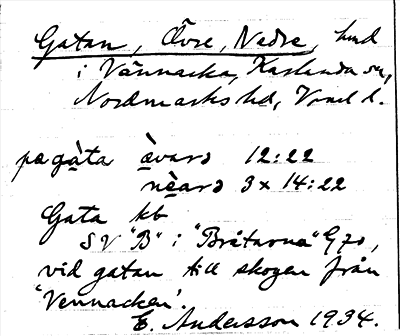 Gatan, Övre, Nedre, hmd
i Vännacka, Karlanda sn,
Nordmarks hd, Vrml d.
pa gàta ə̀varə 12:22
nèarə 3 x 14:22
Gata kb
SV "B" i "Bråtarna" G70,
vid gatan till skogen från
'Vennacken'.
E. Andersson 1934.